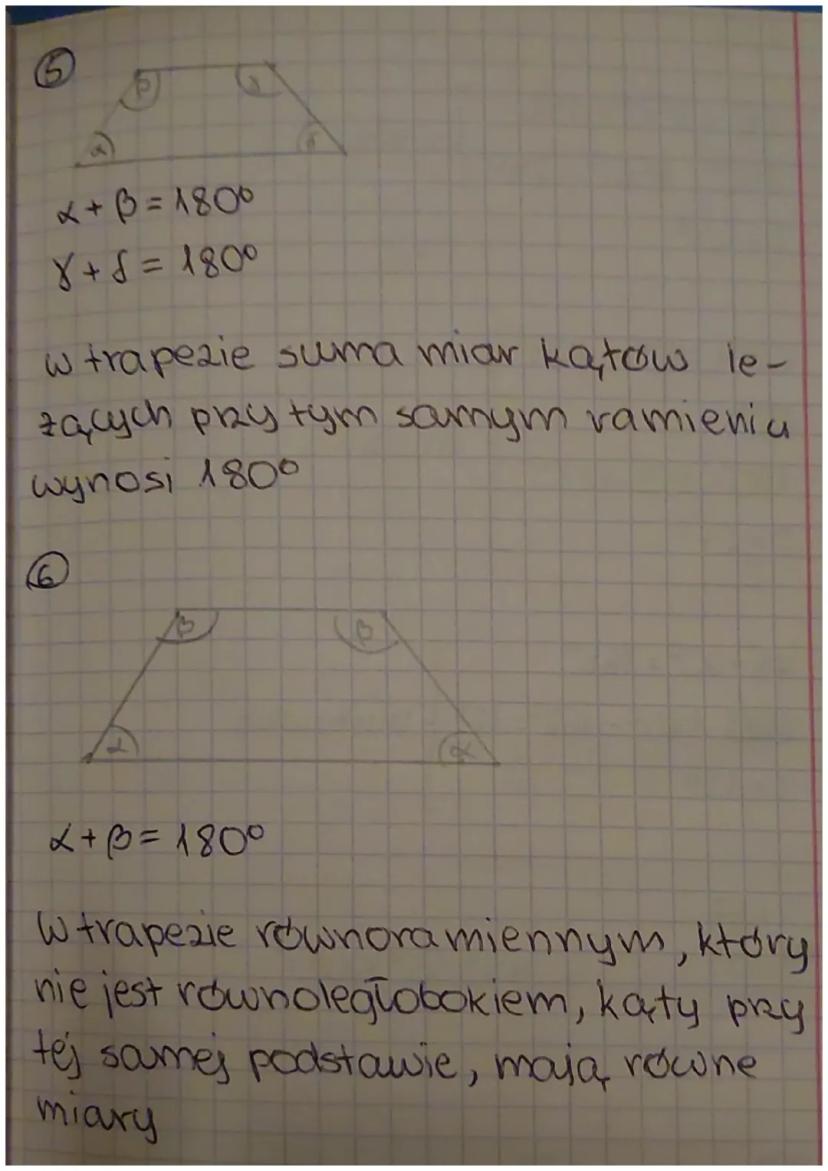 5
β γ
α δ
α + β = 180°
γ + δ = 180°
w trapezie suma miar kątów le-
żących przy tym samym ramieniu
wynosi 180°
6
β β
α α
α + β = 180°
W trapezie równoramiennym, który
nie jest równoległobokiem, kąty przy
tej samej podstawie, mają równe
miary